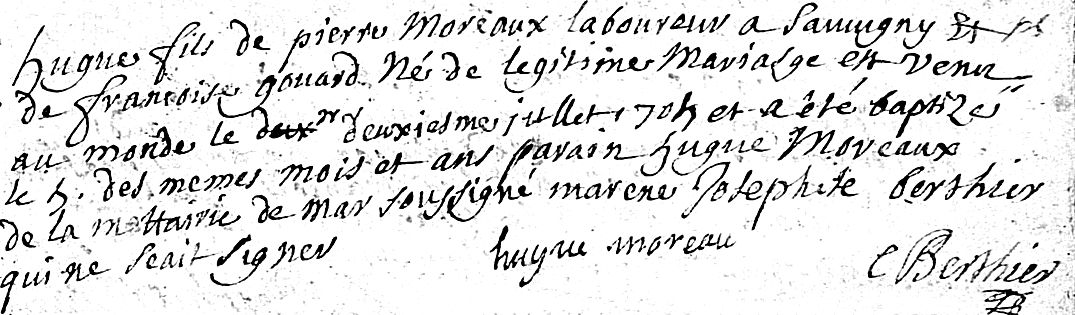 hugue fils de pierre Moreaux laboureur a Sauvigny Et
de francoise gouard Né de legitime Mariasge est venu
au monde le deuxiesme jullet 1704 et a êté baptizé
le 4. des memes mois et ans parain hugue Moreaux
de la mettairie de mar soussigné marene Josephite berthier
qui ne scait signer
hugue moreau
C Berthier